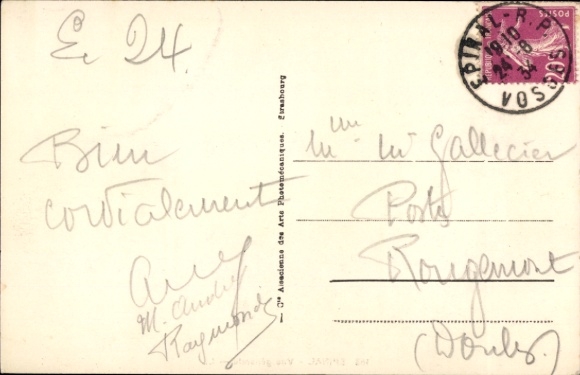 Le 24.
Bien
cordialement
M. André
Raymonde
Cie Alsacienne des Arts Photomécaniques. Strasbourg
EPINAL - R.P.
19-10
24-8
34
VOSGES
POSTES
20c
Mme Mr Gallecier
Poste
Rougemont
(Doubs.)